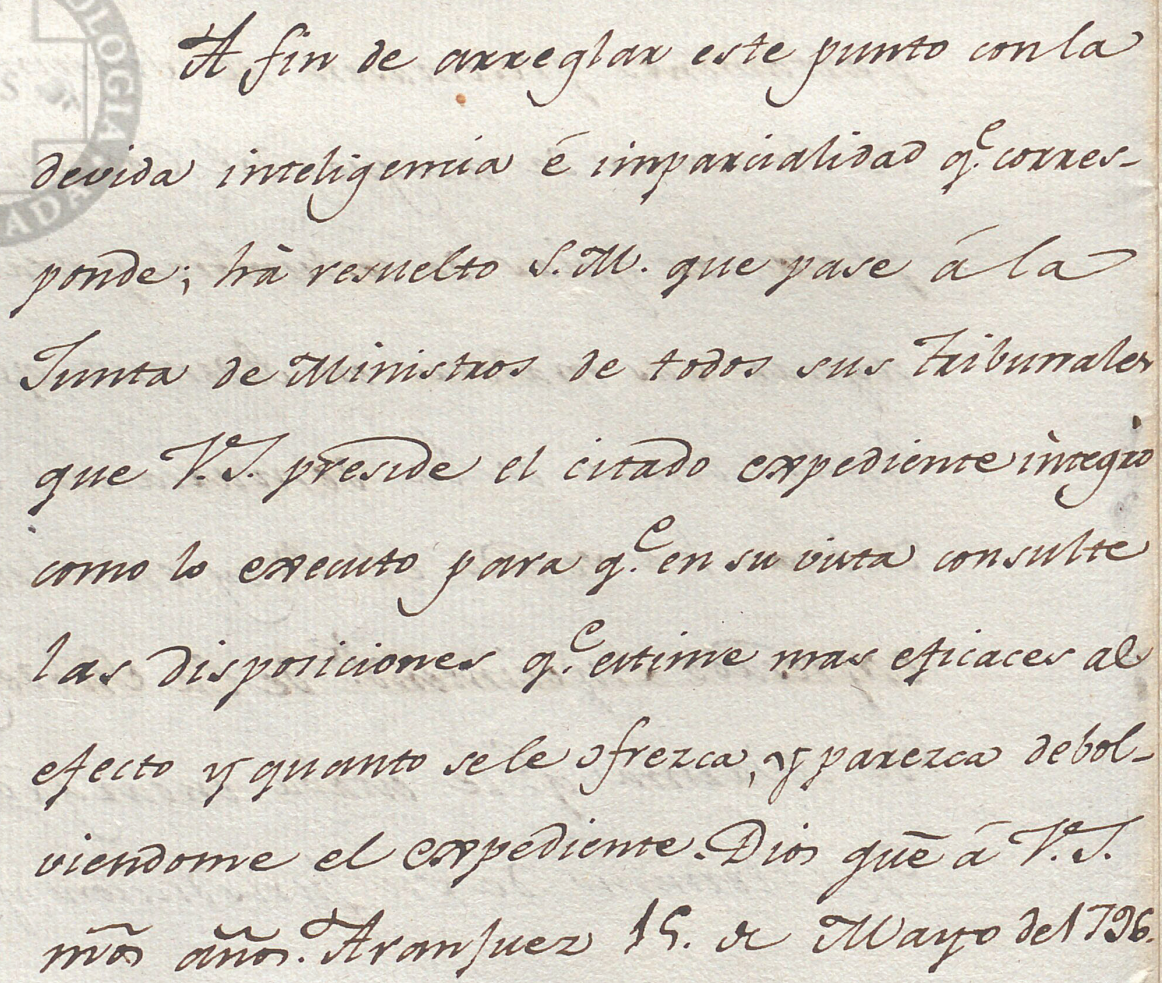 OLOGIA
S
ADA
A fin de arreglar este punto con la
devida inteligencia é imparcialidad q.e corres-
ponde; hà resuelto S.M. que pase á la
Junta de Ministros de todos sus Tribunales
que V.S. preside el citado expediente integro
como lo executo para q.e en su vista consulte
las disposiciones q.e estime mas eficaces al
efecto y quanto se le ofrezca, y parezca debol-
viendome el expediente. Dios gue á V.S.
mõs años. Aranjuez 15. de Mayo de 1796.